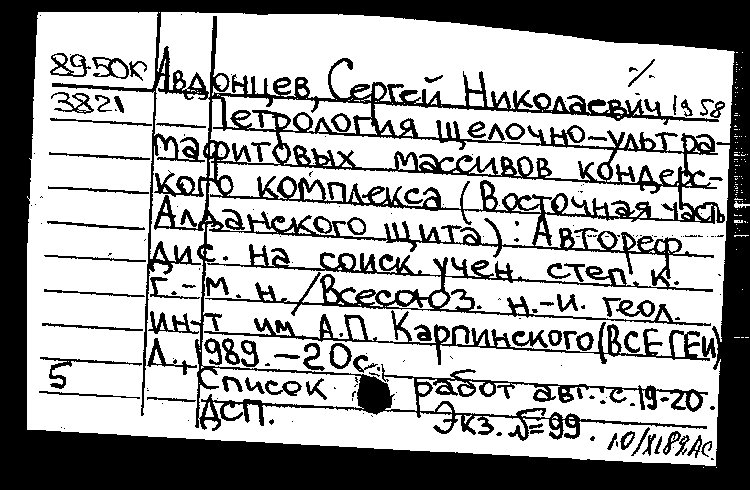 89-50К Авдонцев, Сергей Николаевич, 1958
3821 Петрология щелочно-ультра-
мафитовых массивов кондерс-
кого комплекса (Восточная часть
Алданского щита): Автореф.
дис. на соиск. учен. степ. к.
г.-м. н. /Всесоюз. н.-и. геол.
ин-т им А.П. Карпинского (ВСЕГЕИ)
Л., 1989. - 20с.
5 Список работ авт.: с. 19-20.
ДСП. Экз. №99.